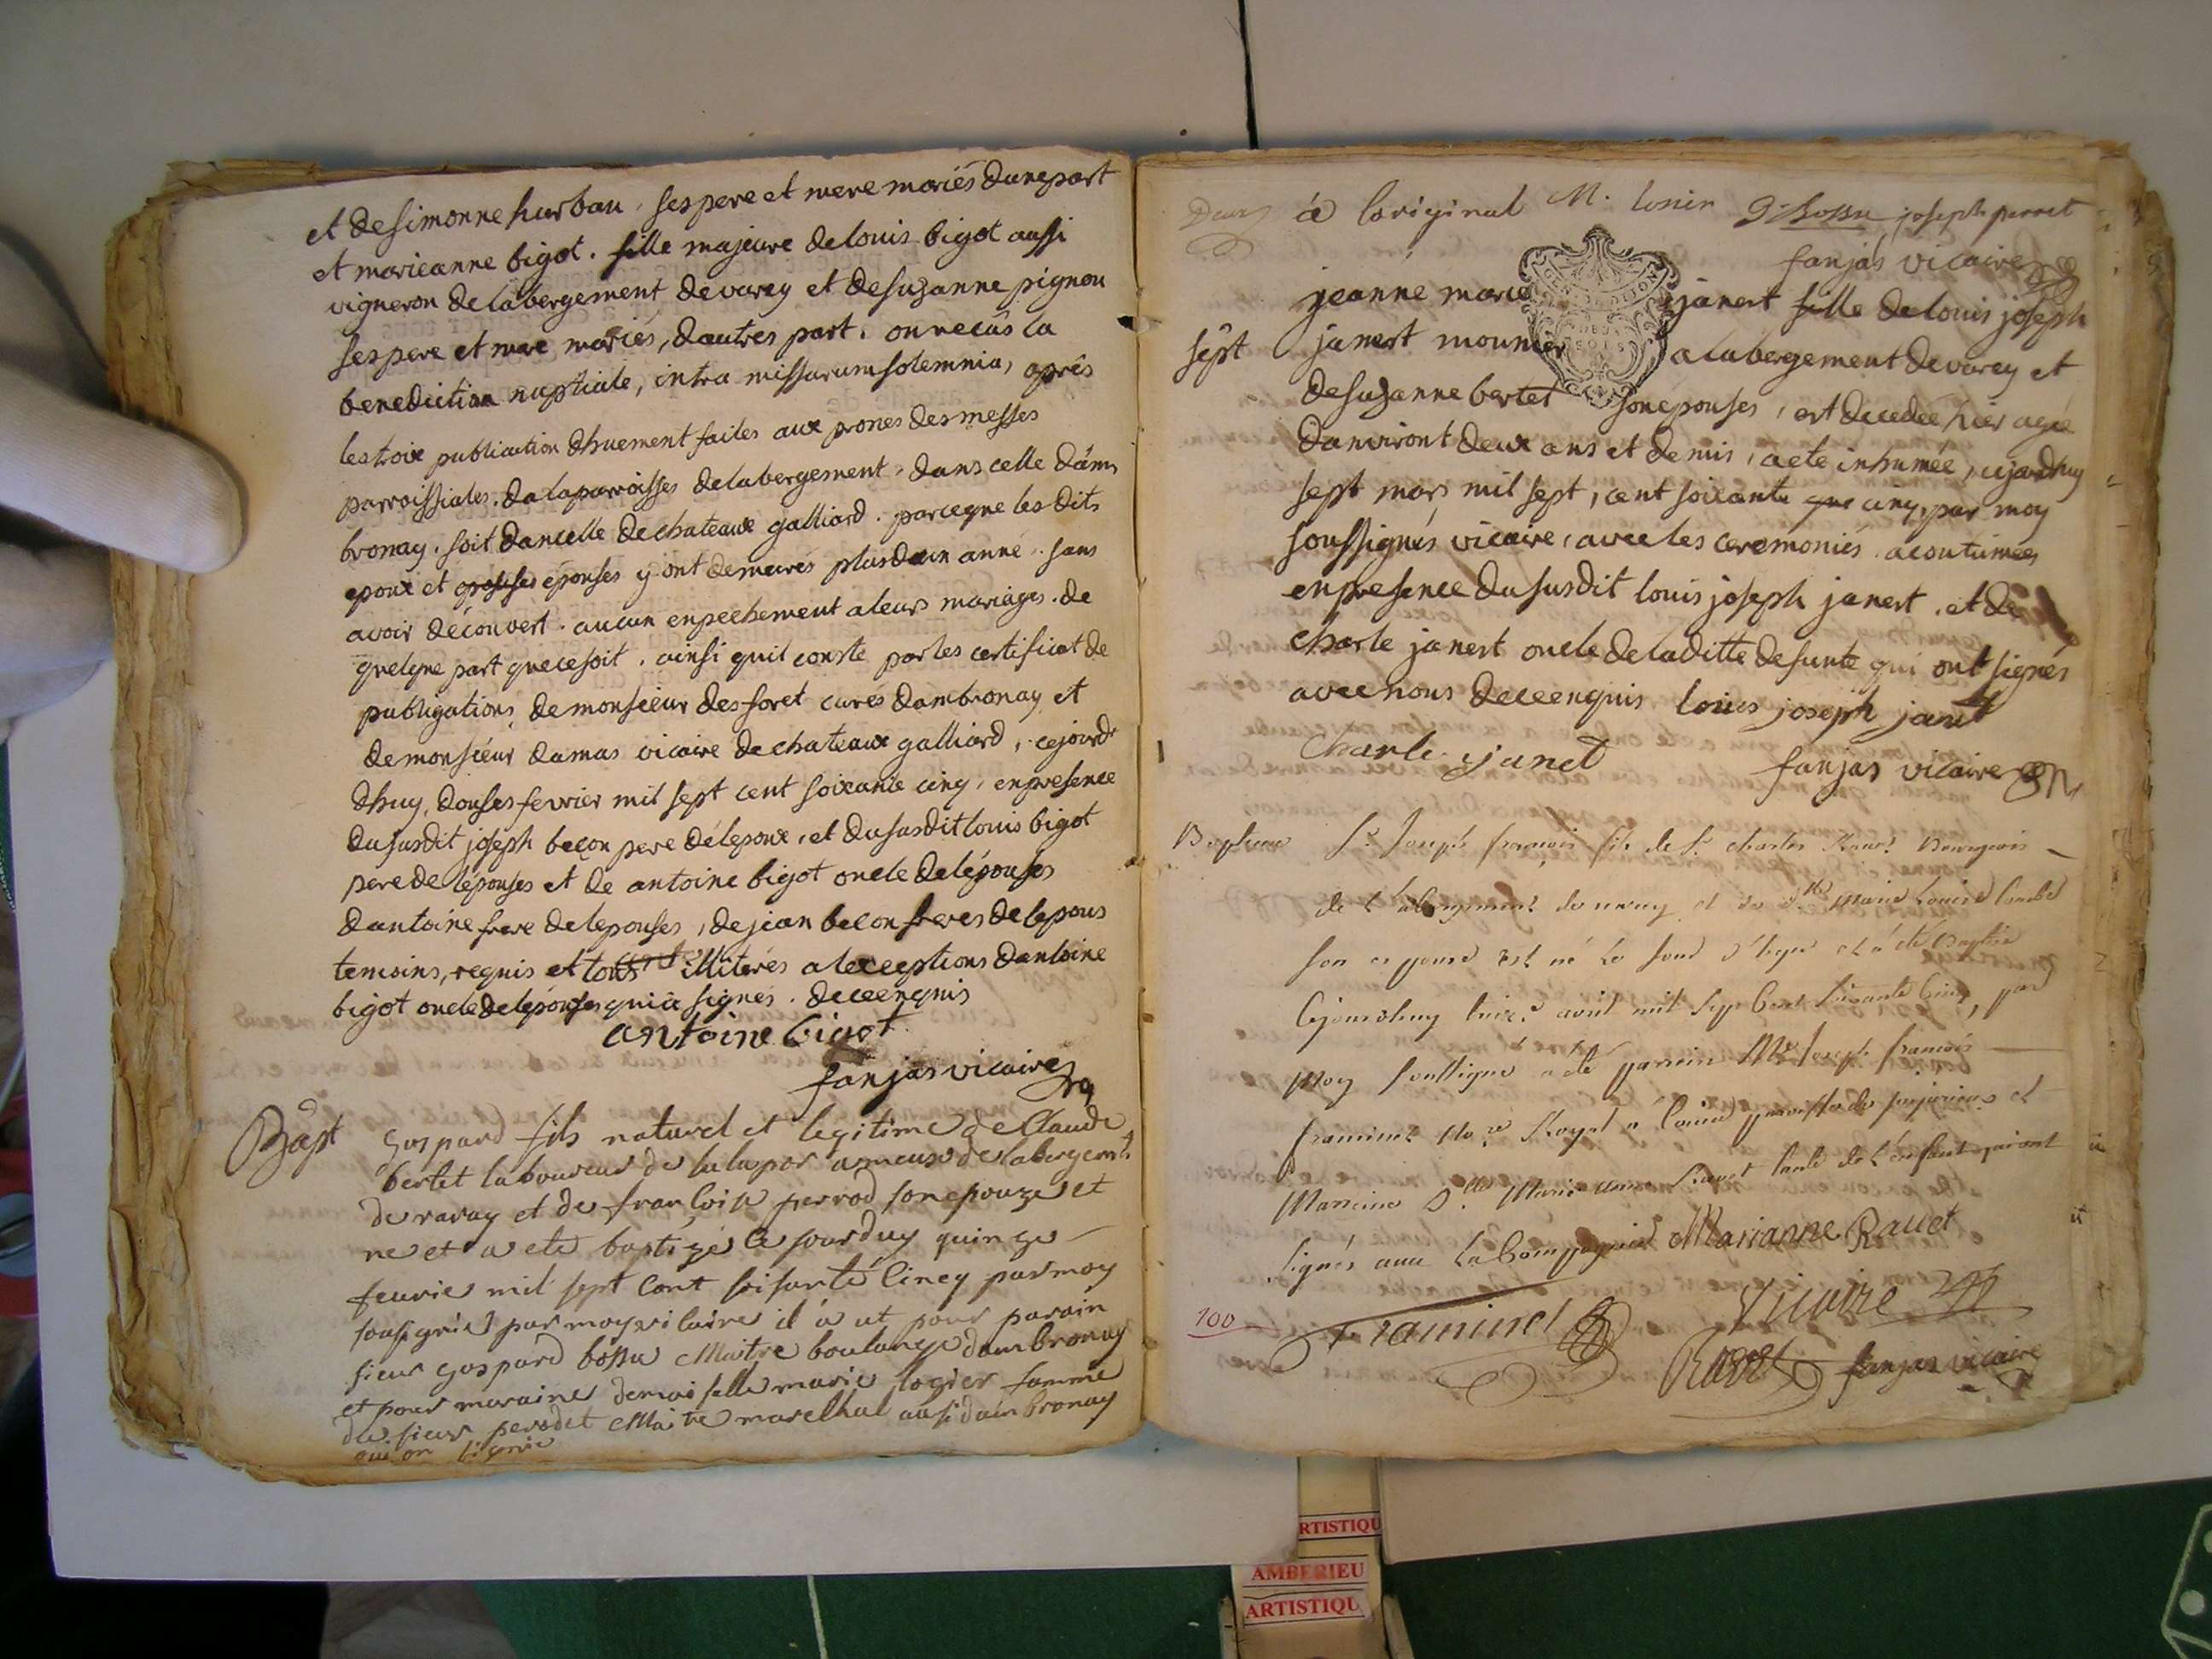 et de simonne hurbau, ses pere et mere mariés dune part
et marieanne bigot. fille majeure de louis bigot aussi
vigneron de labergement de varey et de suzanne pignou
ses pere et mere mariés, dautres part. onrecûs la
benediction nuptiale, intra missarum solemnia, aprês
les troix publication dhuement faites aux prones des messes
parroissiales. de la parroisses de labergement, dans celle dâm,
bronay. soit dancelle de chateaux galliard. parceque les dits
epoux et éponses y ont demeurés plus daun anné. sans
avoir découvert. aucun enpechement aleurs mariages. de
quelque part que ce soit. ainsi quil conste par les certificat de
publigations de monsieeur des foret cures dambronay et
de monsiéur damas vicaire de chateaux galliard, cejourd'
dhuy, douses fevrier mil sept cent soixante cinq, en presence
du susdit joseph beçon pere délepoux, et du susdit louis bigot
pere de léponses et de antoine bigot oncle de léponses
dantoine frere de leponses, de jean becon freres de lepous
temoins, requis et tous illiterés a lexceptions dantoine
bigot oncle de léponses qui a signés. de ceenquis
antoine bigot
fanjas vicaire
Bapt Gaspard fils naturel et legitime de Claude
bertet laboureur de la lapor de labergemt
de varay et de francoise perrod son epouze et
ne et a ete baptizé ce jourduy quinze
feurie mil sept cent soisante cincq par moy
sousigné par moy vicaire il a ut pour parain
sieur gaspard bossu Maitre boulange dambronay
et pour maraine demoiselle marie logier famme
du sieur perodet Maitre marelhal ausi dambronay
qui on signié
Deux a loriginal M. G: Bossu joseph perret
fanjas vicaire
jeanne marie janert fille de louis joseph
sept janert mounier a labergement de varey et
de suzanne bertet son éponses, est decedée hier agée
danviront deux ans et demis, a ete inhumée, cejourdhuy
sept mars mil sept, cent soixante que cinq, par moy
soussignés vicaire, avec les ceremoniés acoutumées
en presence du susdit louis joseph janert. et de
charle janert oncle de laditte defunte qui ont signés
avec nous de ceenquis louis joseph janet
Charle janet fanjas vicaire
Bapteme Sr. Joseph françois fils de Sr. charles Bourgeois
de Labergement de varey et de dlle marie Louise
son epouse est né Le et a été Baptisé
cejourdhuy avril mil sept Cent soixante Cinq, par
moy soussigné a été parrin Mre Joseph françois
framinet Royal a paroisse de et
Marreine Dlle Marie anne Ravet tante de l'enfant qui ont
signés avec La Compagnie Marianne Ravet
100 Framinet Vicaire
Ravet fanjas vicaire
RTISTIQU
AMBERIEU
ARTISTIQU